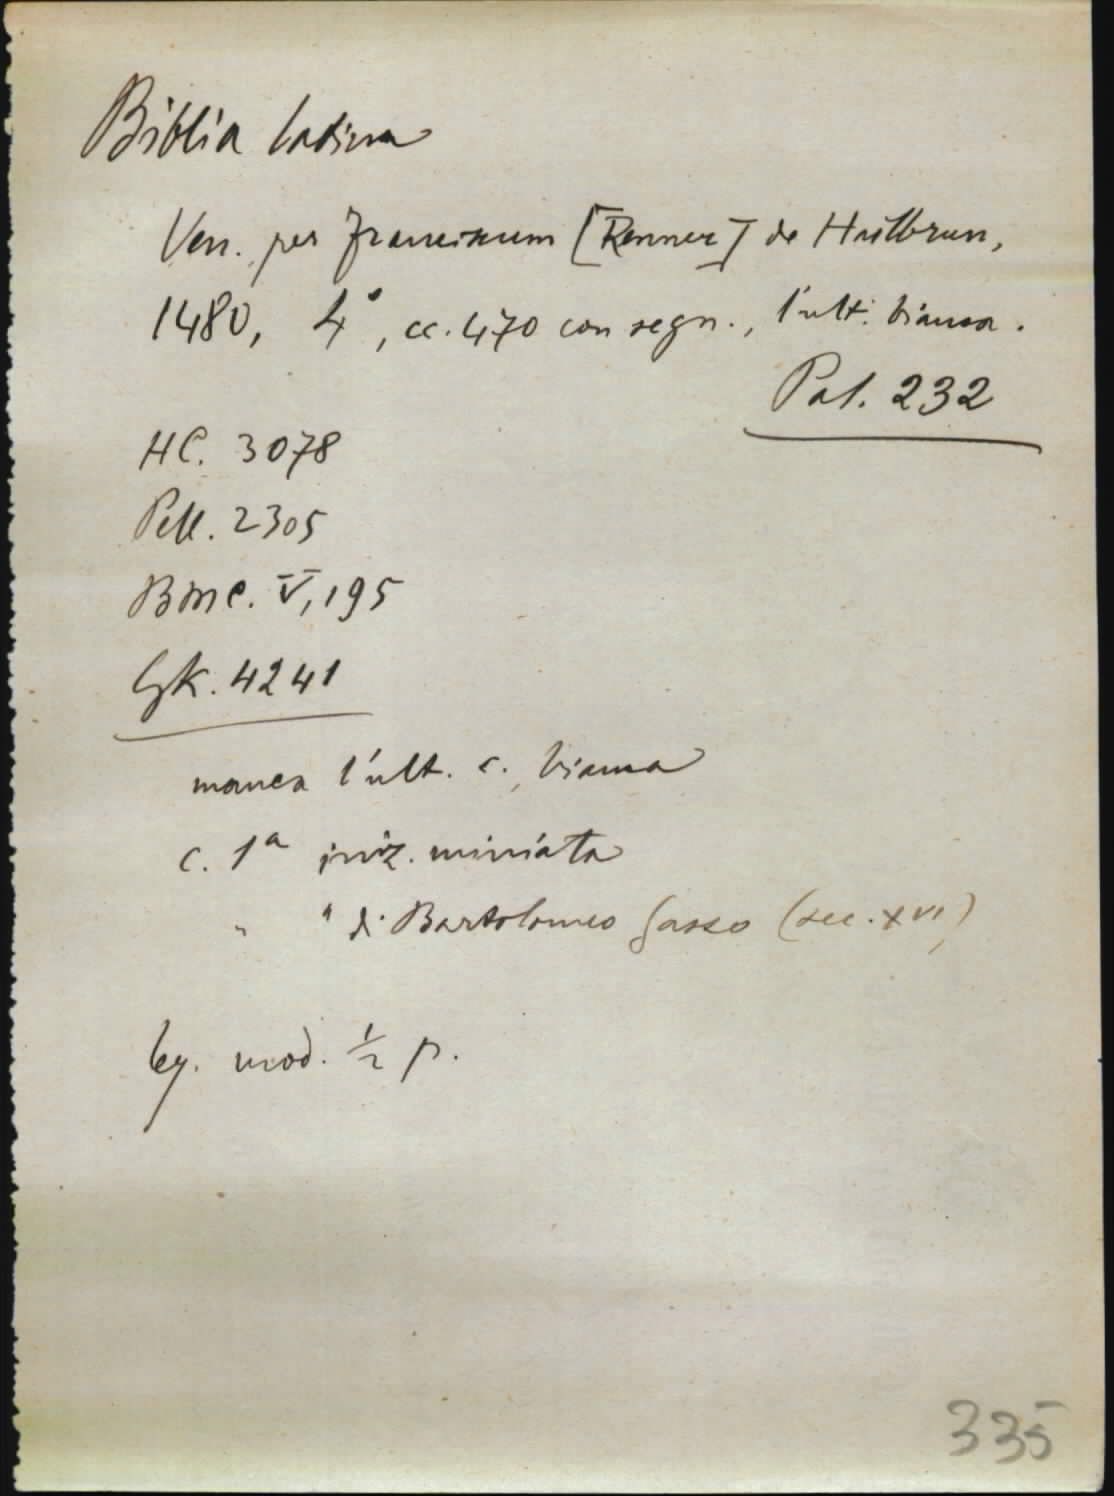 Biblia latina
Ven. per Franciscum [Renner] de Hailbrun,
1480, 4°, cc. 470 con segn., l'ult. bianca.
Pal. 232
HC. 3078
Pell. 2305
BMC. V, 195
GK. 4241
manca l'ult. c., bianca
c. 1a iniz. miniata
" " di Bartolomeo Sasso (sec. XVI)
leg. mod. ½ p.
335